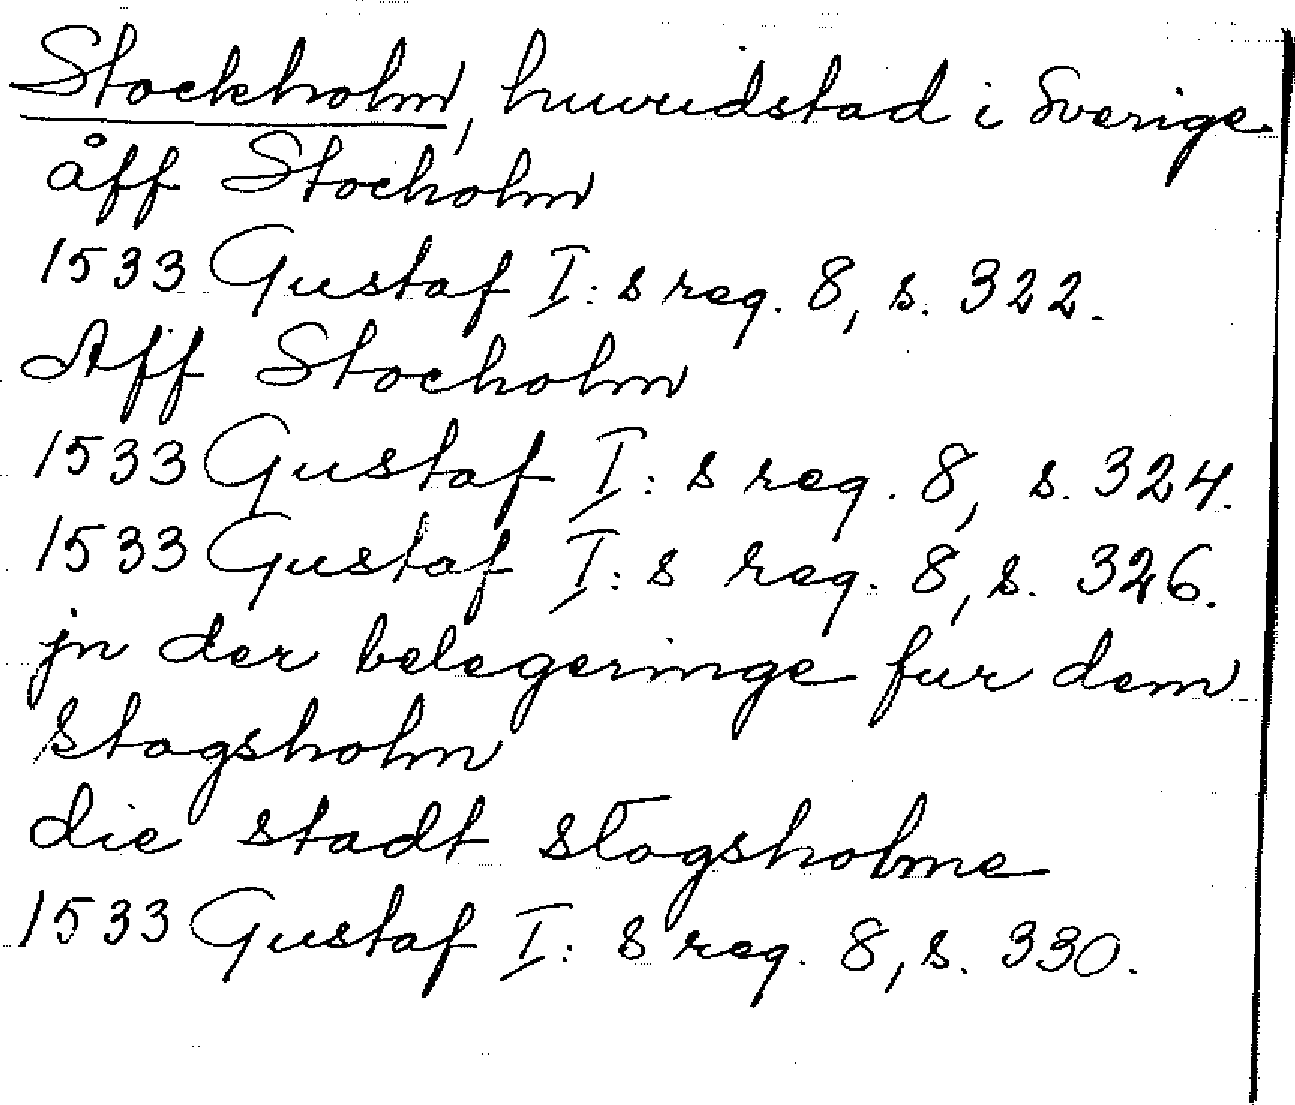 Stockholm, huvudstad i Sverige
åff Stocholm
1533 Gustaf I: s reg. 8, s. 322.
Aff Stocholm
1533 Gustaf I: s reg. 8, s. 324.
1533 Gustaf I: s reg. 8, s. 326.
jn der belegeringe fur dem
stogsholm
die stadt stogsholme
1533 Gustaf I: s reg. 8, s. 330.